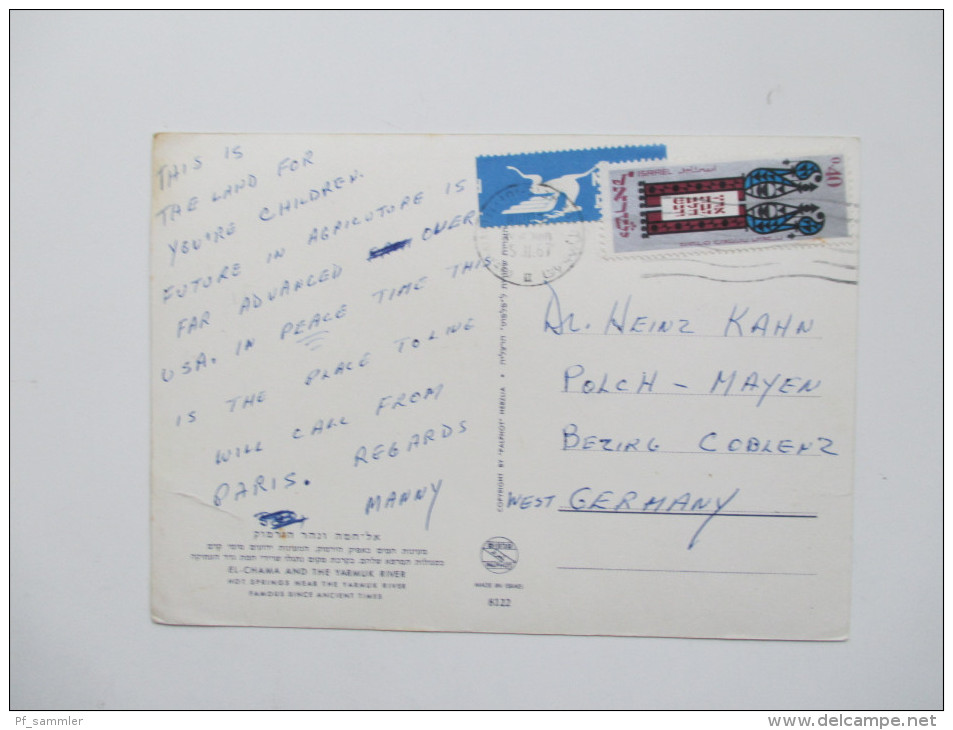 THIS IS
THE LAND FOR
YOU'RE CHILDREN.
FUTURE IN AGRICUTURE IS
FAR ADVANCED OVER
USA. IN PEACE TIME THIS
IS THE PLACE TO LIVE
WILL CALL FROM
PARIS. REGARDS
MANNY
אל-חמה ונהר הירמוק
EL-CHAMA AND THE YARMUK RIVER
HOT SPRINGS NEAR THE YARMUK RIVER
FAMOUS SINCE ANCIENT TIMES
COPYRIGHT BY "PALPHOT" HERZLIA
MADE IN ISRAEL
8322
ISRAEL
0.40
DR. HEINZ KAHN
POLCH - MAYEN
BEZIRG COBLENZ
WEST GERMANY
Pf_sammler
www.delcampe.net